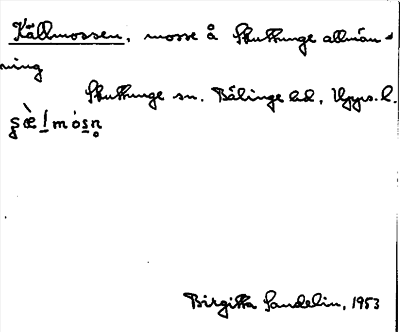 Källmossen, mosse å Skuttunge allmän-
ning
Skuttunge sn. Bälinge hd, Upps. l.
ʂæ̀l̲mósn̥
Birgitta Sandelin, 1953